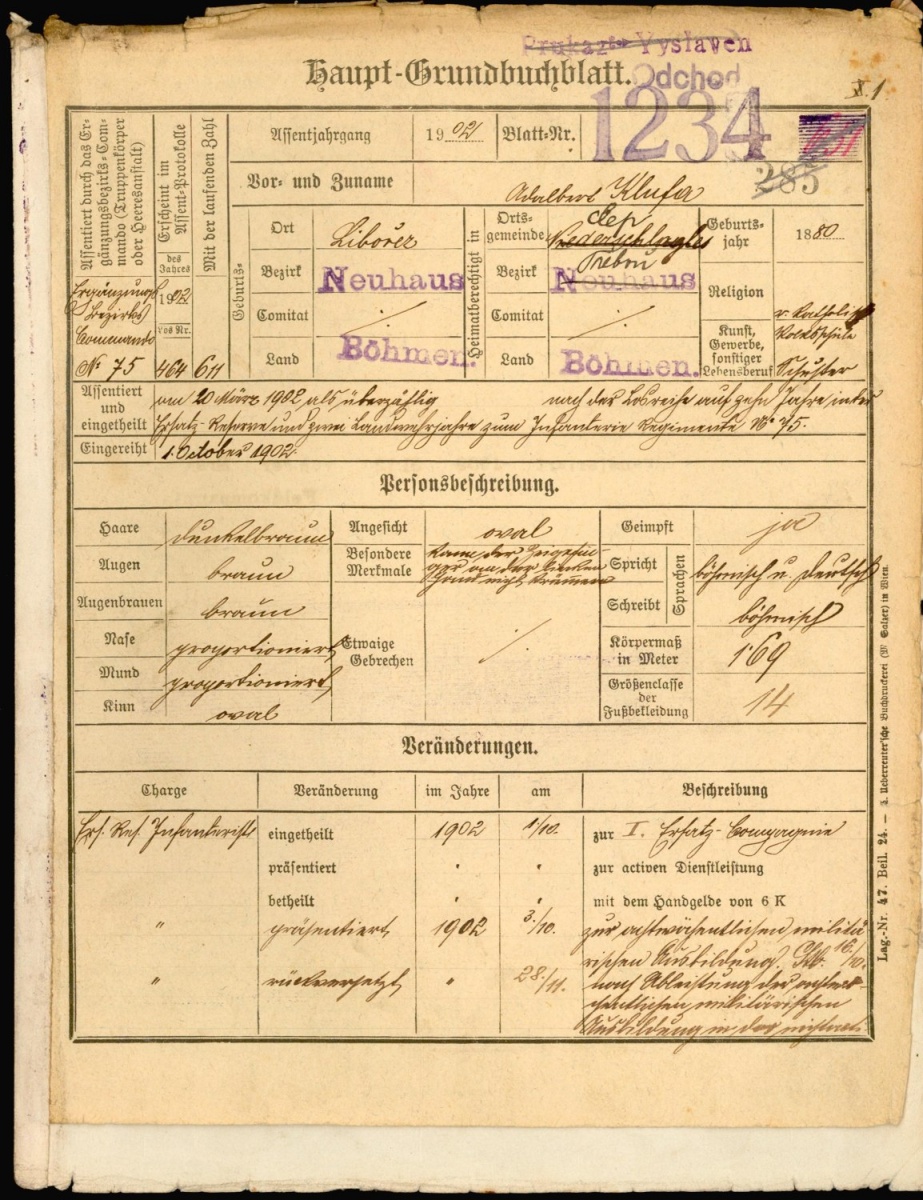 Prukaz Vyslaven
Odchod
Haupt-Grundbuchblatt.
1
Assentiert durch das Ergänzungsbezirks-Commando (Truppenkörper oder Heeresanstalt)
Erscheint im Assent-Protokolle
Mit der laufenden Zahl
des Jahres
1902
Los Nr.
464
611
Ergänzungs
Bezirks
Commando
№ 75
Assentjahrgang
1902
Blatt-Nr.
1234
285
Vor- und Zuname
Adalbert Klufa
Geburts-
Ort
Bezirk
Neuhaus
Comitat
Land
Böhmen.
Heimatberechtigt in
Ortsgemeinde
Bezirk
Neuhaus
Comitat
Land
Böhmen.
Geburtsjahr
1880
Religion
r. katholisch
Kunst, Gewerbe, sonstiger Lebensberuf
Volksschule
Schuster
Assentiert und eingetheilt
am 20 März 1902, als überzählig nach der Losreihe auf zehn Jahre in der
Ersatz-Reserve und zwei Landwehrjahre zum Infanterie Regimente № 75.
Eingereiht
1. October 1902.
Personsbeschreibung.
Haare
dunkelbraun
Augen
braun
Augenbrauen
braun
Nase
proportioniert
Mund
proportioniert
Kinn
oval
Angesicht
oval
Besondere Merkmale
Kann den Zeigefin-
ger an der linken
Hand nicht krümmen
Etwaige Gebrechen
Geimpft
ja
Sprachen
Spricht
böhmisch u. deutsch
Schreibt
böhmisch
Körpermaß in Meter
1·69
Größenclasse der Fußbekleidung
14
Veränderungen.
Charge Veränderung im Jahre am Beschreibung
Ers. Res. Infanterist eingetheilt 1902 1/10. zur I. Ersatz-Compagnie
präsentiert " " zur activen Dienstleistung
betheilt " " mit dem Handgelde von 6 K
" präsentiert 1902 3./10. zur achtwöchentlichen militä
rischen Ausbildung.
" rückversetzt " 28./11. nach Ableistung der achtwö-
chentlichen militärischen
Ausbildung in das nichtacti-
Lag.-Nr. 47. Beil. 24. — k. Ueberreuter'sche Buchdruckerei (M. Salzer) in Wien.